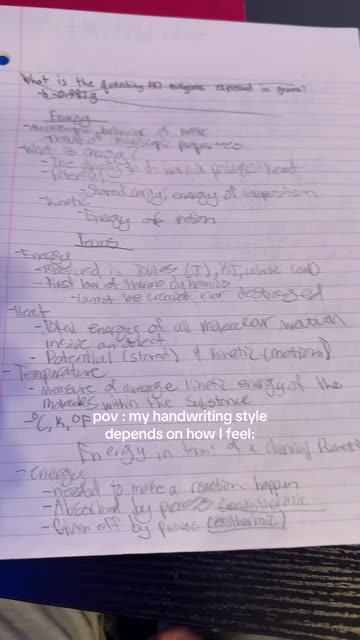 What is the quantity 987 milligrams expressed in grams?
-b-0.987g
Energy
-Macroscopic behavior of matter
-Result of microscopic properties
-What is energy?
-The ability to do work or produce heat
-Potential
-Stored energy; energy of composition
-Kinetic
-Energy of motion
Terms
-Energy
-Measured in Joules (J), KJ, calorie (cal)
-First law of thermo dynamics
-Cannot be created nor destroyed
-Heat
-Total energy of all molecular motion
inside an object
-Potential (stored) & kinetic (motions)
-Temperature
-Measure of average kinetic energy of the
molecules within the substance
-°C, K, °F
pov : my handwriting style
depends on how I feel:
Energy in terms of a Chemical Reacti
-Energy
-needed to make a reaction happen
-Absorbed by process (endothermic
-Given off by process (exothermic)